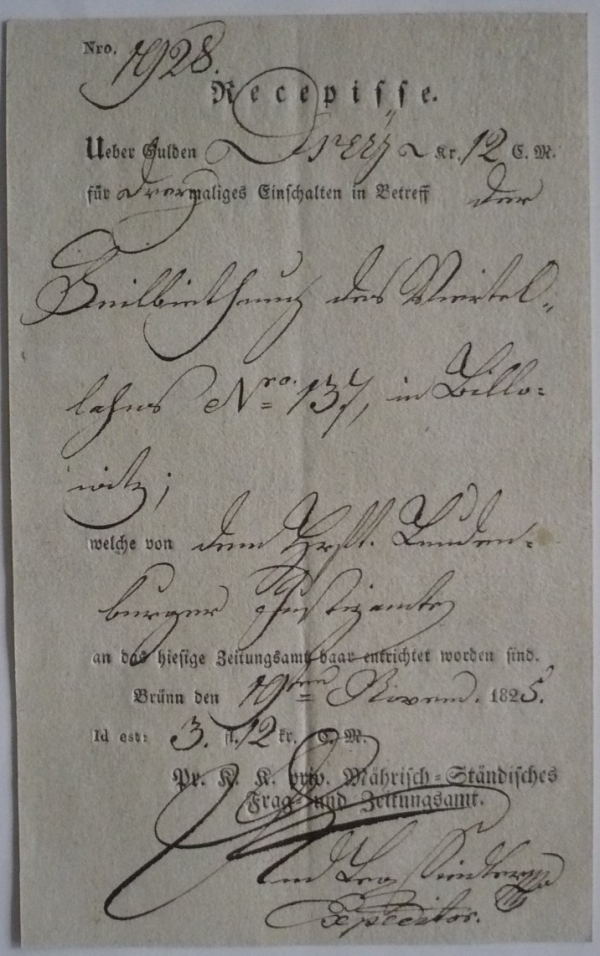 Nro. 1928.
Recepisse.
Ueber Gulden Dreÿ Kr. 12 C. M.
für dreymaliges Einschalten in Betreff der
Feilbiethung des Viertel-
lahns Nro. 137, in Billo-
witz;
welche von dem Hrftl. Lunden-
burger Justizamte
an das hiesige Zeitungsamt baar entrichtet worden sind.
Brünn den 19ten Novem. 1825.
Id est: 3. fl. 12 kr. C. M.
Pr. K. K. priv. Mährisch-Ständisches
Frag- und Zeitungsamt.
Expeditor.